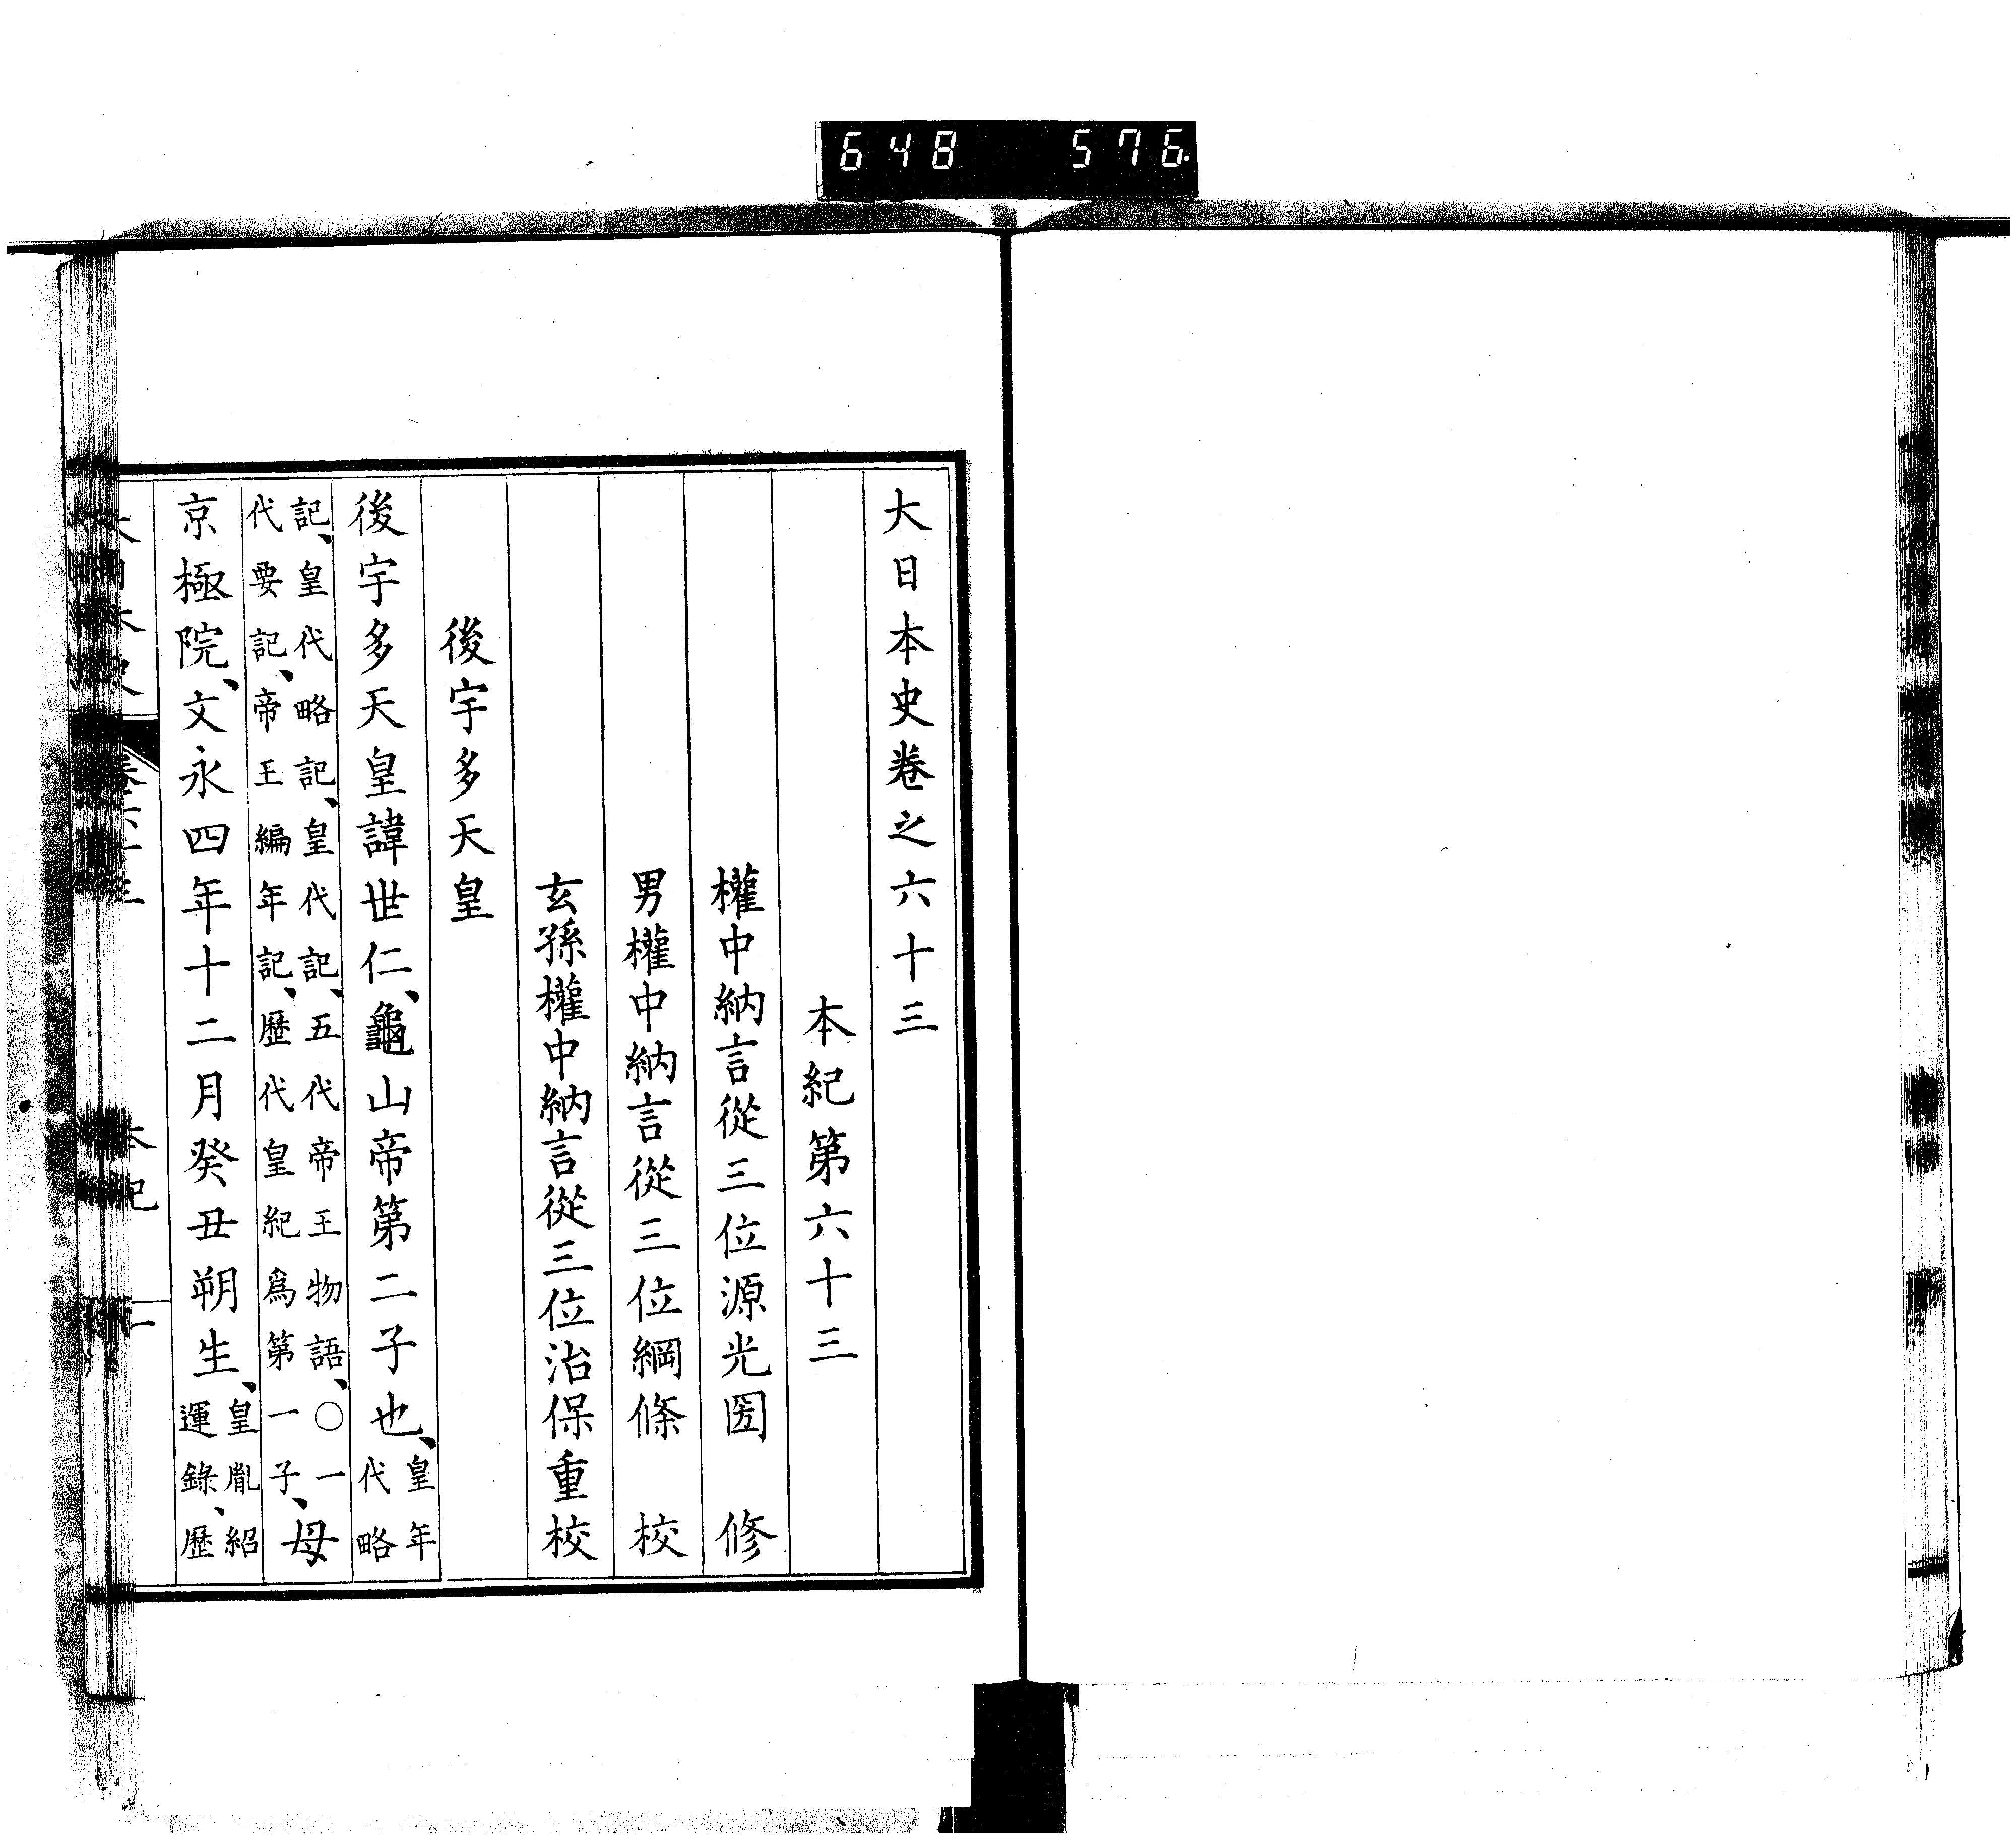 648 576
大日本史卷之六十三
本紀第六十三
權中納言從三位源光圀 修
男權中納言從三位綱條 校
玄孫權中納言從三位治保重校
後宇多天皇
後宇多天皇諱世仁、龜山帝第二子也、皇年代略
記、皇代略記、皇代記、五代帝王物語、〇一代要記、帝王編年記、歷代皇紀爲第一子、母
京極院、文永四年十二月癸丑朔生、皇胤紹運錄、歷
本紀